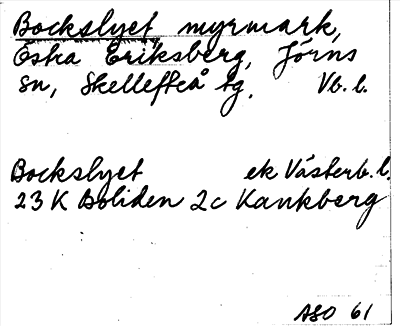 Bockslyet myrmark,
Östra Eriksberg, Jörns
sn, Skellefteå tg, Vb. l.
Bockslyet ek Västerb. l.
23 K Boliden 2c Kankberg
ASO 61